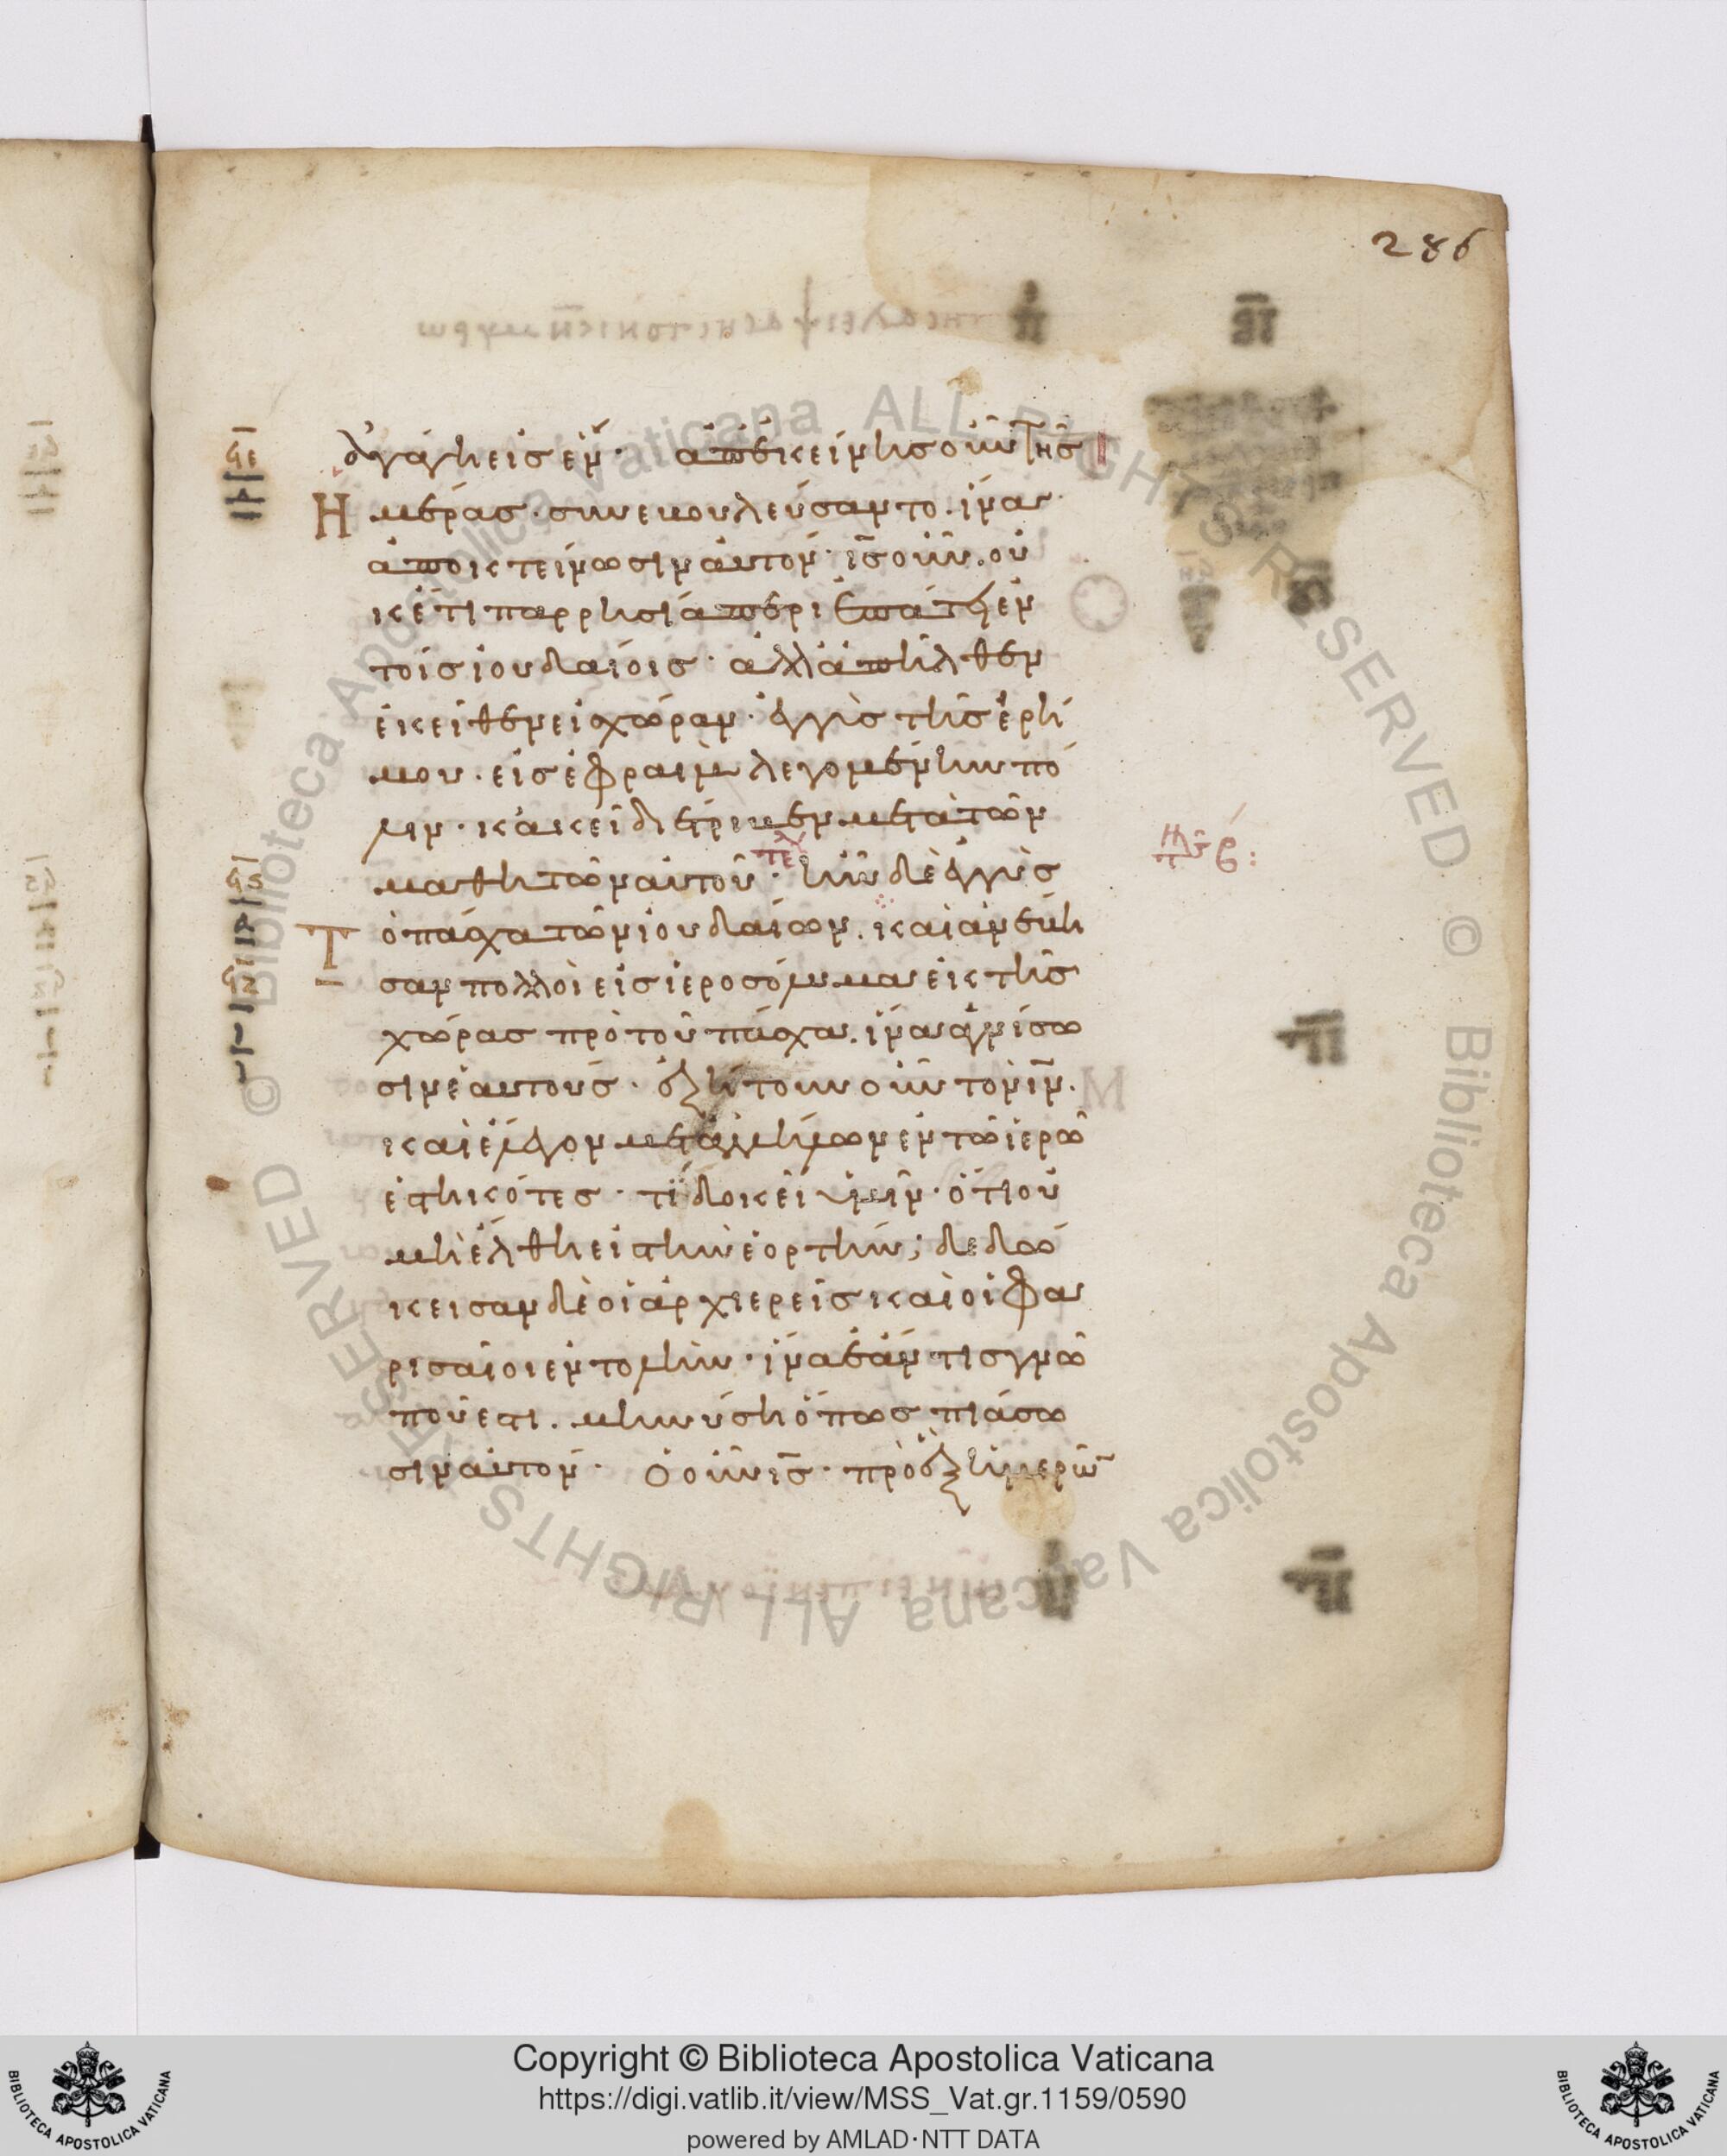 286
δυναγάγη εἰς ἕν· ἀπ' ἐκείνης οὖν τῆς
Ημέρας· συνεβουλεύσαντο· ἵνα
ἀποκτείνωσιν αὐτόν· ις οὖν. οὐ
κέτι παρρησία περιεπάτη ἐν
τοῖς ἰουδαίοις· ἀλλὰ ἀπῆλθεν
ἐκεῖθεν εἰς χώραν· ἐγγὺς τῆς ἐρή
μου· εἰς ἐφραὶμ λεγομένην πό
λιν· κἀκεῖ διέτριβεν μετὰ τῶν
μαθητῶν αὐτοῦ· ἦν δὲ ἐγγὺς
Τὸ πάσχα τῶν ἰουδαίων. καὶ ἀνέβη
σαν πολλοὶ εἰς ἱεροσόλυμα ἐκ τῆς
χώρας πρὸ τοῦ πάσχα. ἵνα ἁγνίσω
σιν ἑαυτούς· ἐζήτουν οὖν τὸν ιν.
καὶ ἔλεγον μετ' ἀλλήλων ἐν τῶ ἱερῶ
ἑστηκότες· τί δοκεῖ ὑμῖν· ὅτι οὐ
μὴ ἔλθη εἰς τὴν ἑορτήν; δεδώ
κεισαν δὲ οἱ ἀρχιερεῖς καὶ οἱ φα
ρισαῖοι ἐντολὴν· ἵνα ἐάν τις γνῶ
ποῦ ἐστι. μηνύση ὅπως πιάσω
σιν αὐτόν· Ὁ οὖν ις· πρὸ ἓξ ἡμερῶν
Copyright © Biblioteca Apostolica Vaticana
https://digi.vatlib.it/view/MSS_Vat.gr.1159/0590
powered by AMLAD·NTT DATA
BIBLIOTECA APOSTOLICA VATICANA
BIBLIOTECA APOSTOLICA VATICANA